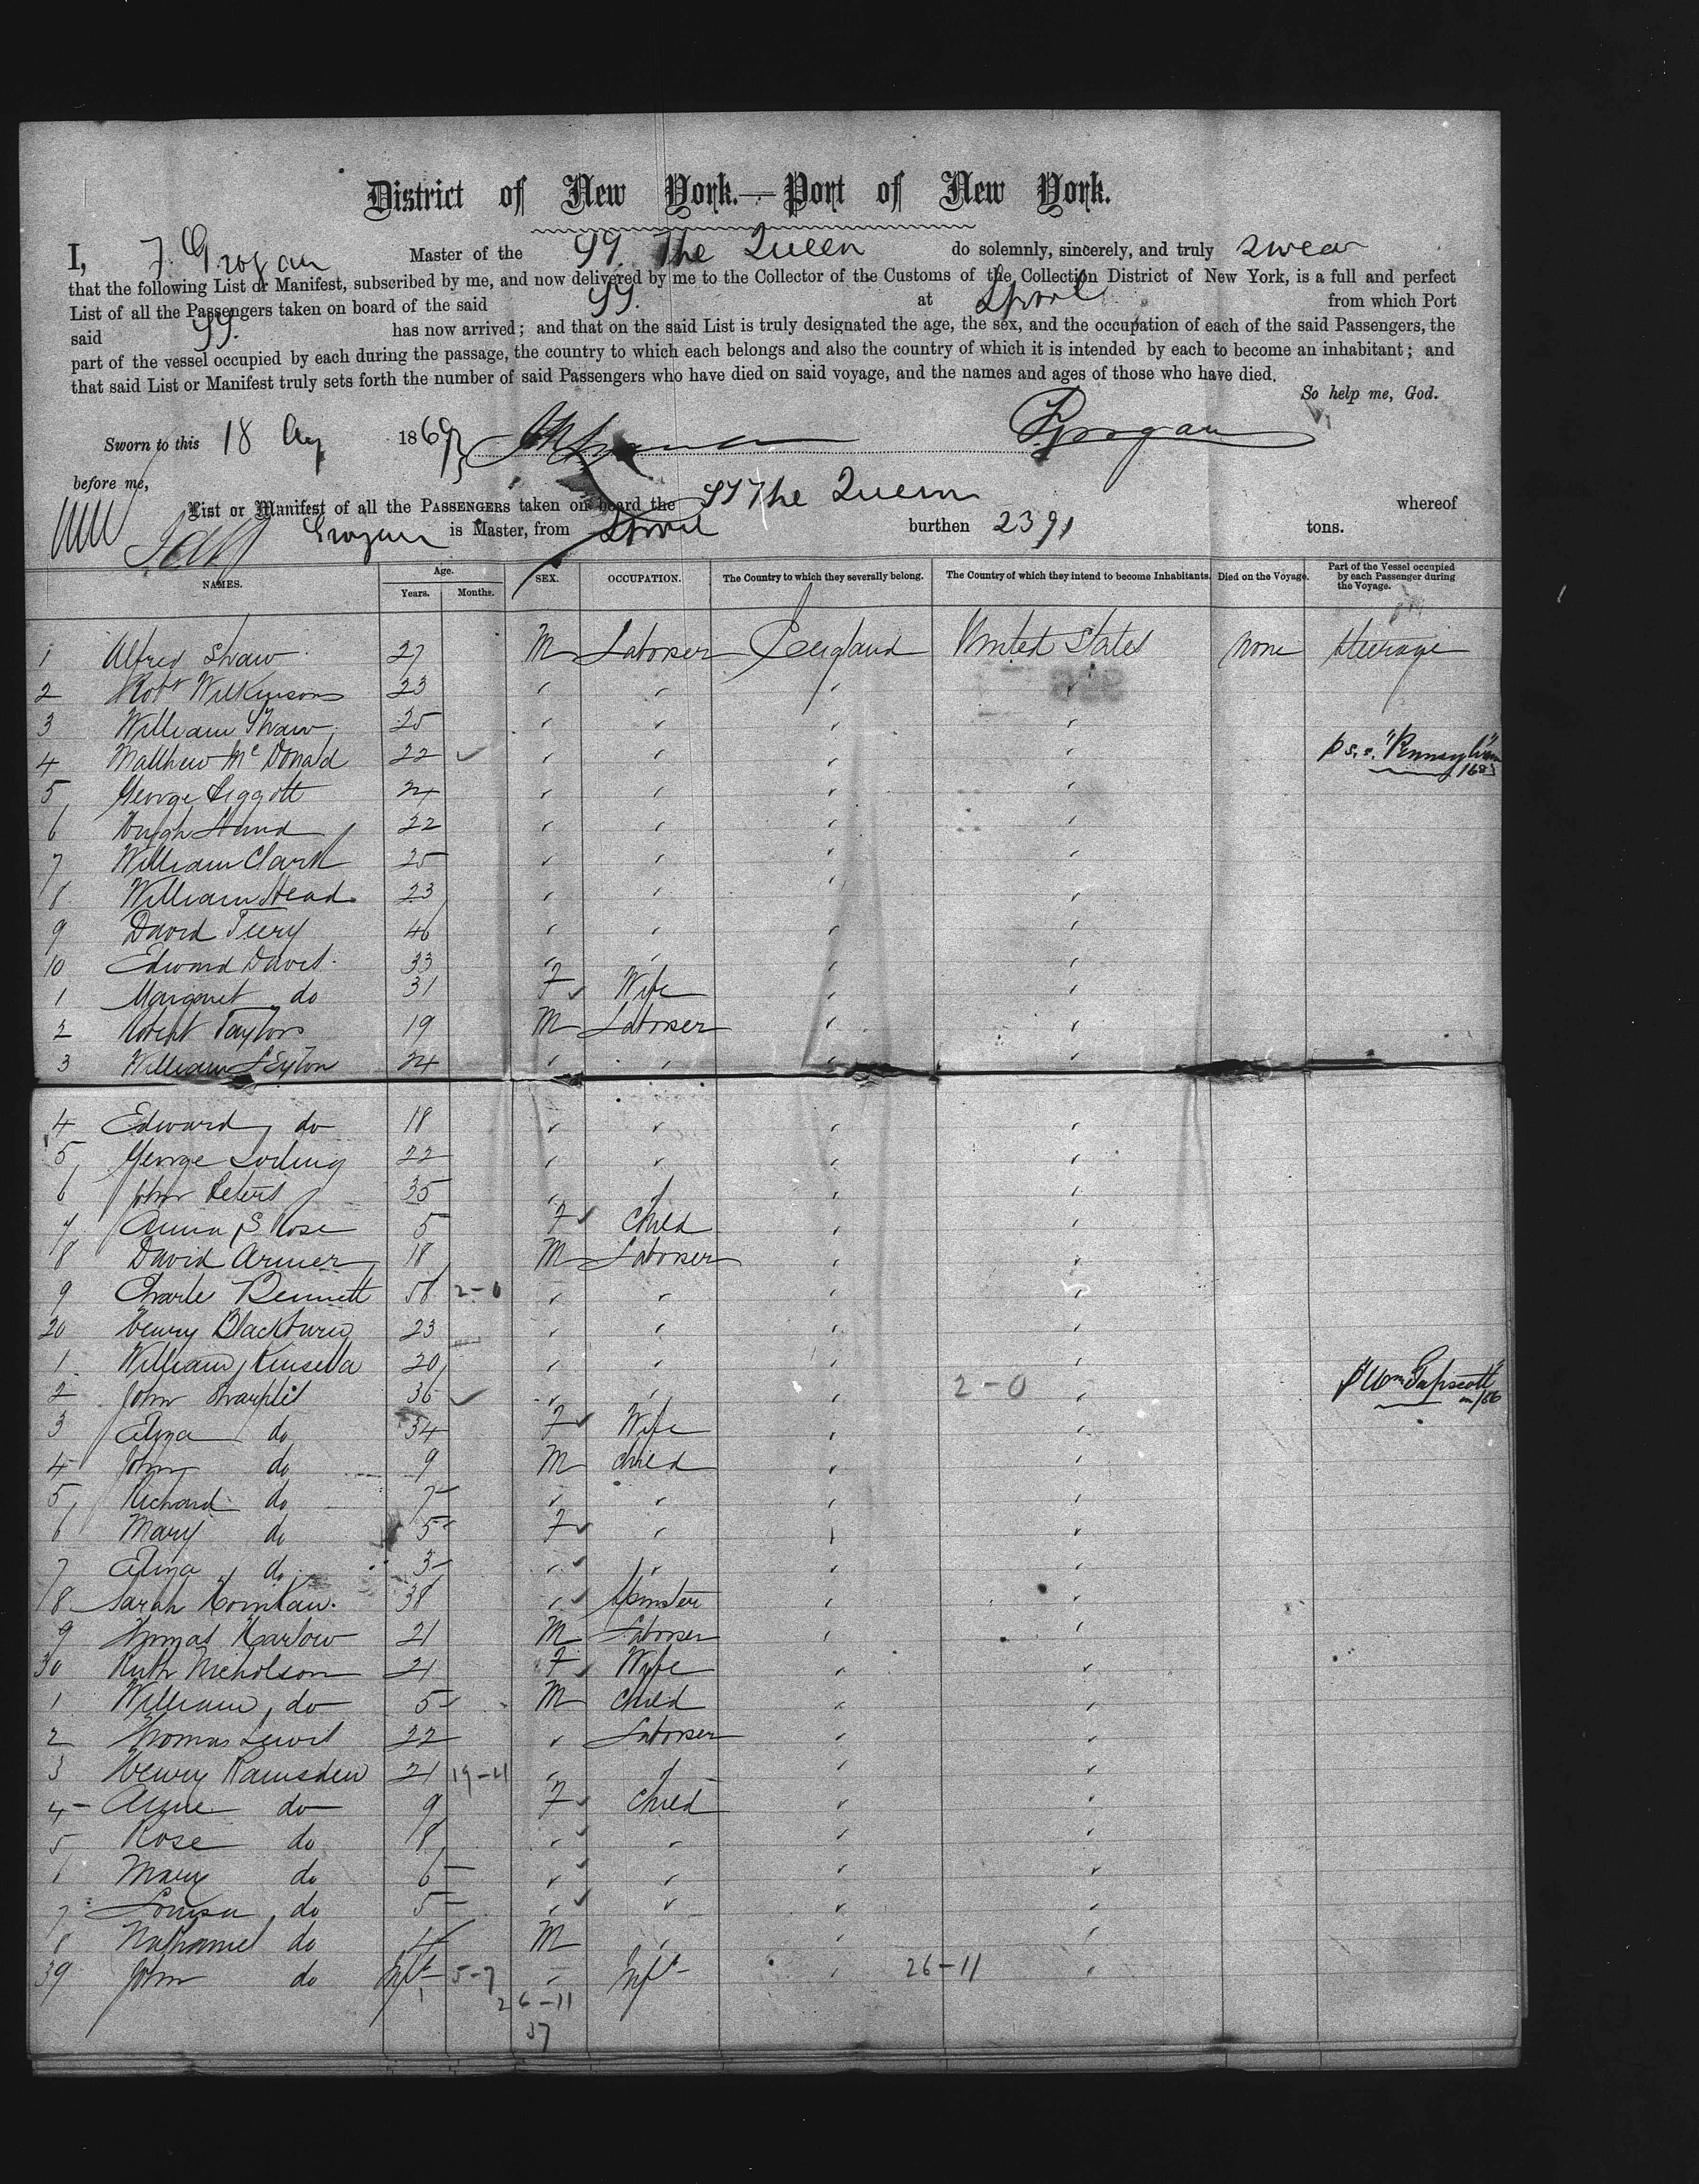 District of New York.—Port of New York.
I, F. Grogan Master of the SS. The Queen do solemnly, sincerely, and truly swear
that the following List or Manifest, subscribed by me, and now delivered by me to the Collector of the Customs of the Collection District of New York, is a full and perfect
List of all the Passengers taken on board of the said SS. at Lpool from which Port
said SS. has now arrived; and that on the said List is truly designated the age, the sex, and the occupation of each of the said Passengers, the
part of the vessel occupied by each during the passage, the country to which each belongs and also the country of which it is intended by each to become an inhabitant; and
that said List or Manifest truly sets forth the number of said Passengers who have died on said voyage, and the names and ages of those who have died.
So help me, God.
Sworn to this 18 Aug 1869 F Grogan
before me,
List or Manifest of all the PASSENGERS taken on board the SS The Queen whereof
Grogan is Master, from Lpool burthen 2391 tons.
NAMES. Age. Years. Months. SEX. OCCUPATION. The Country to which they severally belong. The Country of which they intend to become Inhabitants. Died on the Voyage. Part of the Vessel occupied by each Passenger during the Voyage.
1 Alfred Shaw 27 M Laborer England United States none Steerage
2 Robt Wilkinson 23 " " " "
3 William Shaw 25 " " " "
4 Matthew McDonald 22 ✓ " " " " p s.s. "Pennsylvan
5 George Liggott 24 " " " "
6 Hugh Hand 22 " " " "
7 William Clark 25 " " " "
8 William Head 23 " " " "
9 David Terry 46 " " " "
10 Edward Davis 33 " " " "
1 Margaret do 31 F ✓ Wife " "
2 Robert Taylor 19 M Laborer " "
3 William Leyton 24 " " " "
4 Edward do 18 " " " "
5 George 22 " " " "
6 John Peters 35 " " " "
7 Anna S Rose 5 F ✓ Child " "
8 David Armer 18 M Laborer " "
9 Charles Bennett 58 2-0 " " " "
20 Henry Blackburn 23 " " " "
1 William Kinsella 20 " " " "
2 John Sharples 36 ✓ " " " 2-0 " p "Wm Tapscott"
3 Eliza do 34 F ✓ Wife " "
4 John do 9 M Child " "
5 Richard do 7 " " " "
6 Mary do 5 F ✓ " " "
7 Eliza do 3 " ✓ " " "
8 Sarah 38 " Spinster " "
9 Thomas Harlow 21 M Laborer " "
30 Ruth Nicholson 21 F ✓ Wife " "
1 William do 5 M Child " "
2 Thomas Lewis 22 " Laborer " "
3 Henry Ramsden 21 19-11 " " " "
4 Anne do 9 F ✓ Child " "
5 Rose do 8 " ✓ " " "
6 Mary do 6 " ✓ " " "
7 Louisa do 5 " ✓ " " "
8 Nathaniel do 4 M " " "
39 John do Inft 5-7 " Inft " 26-11 "
26-11
37